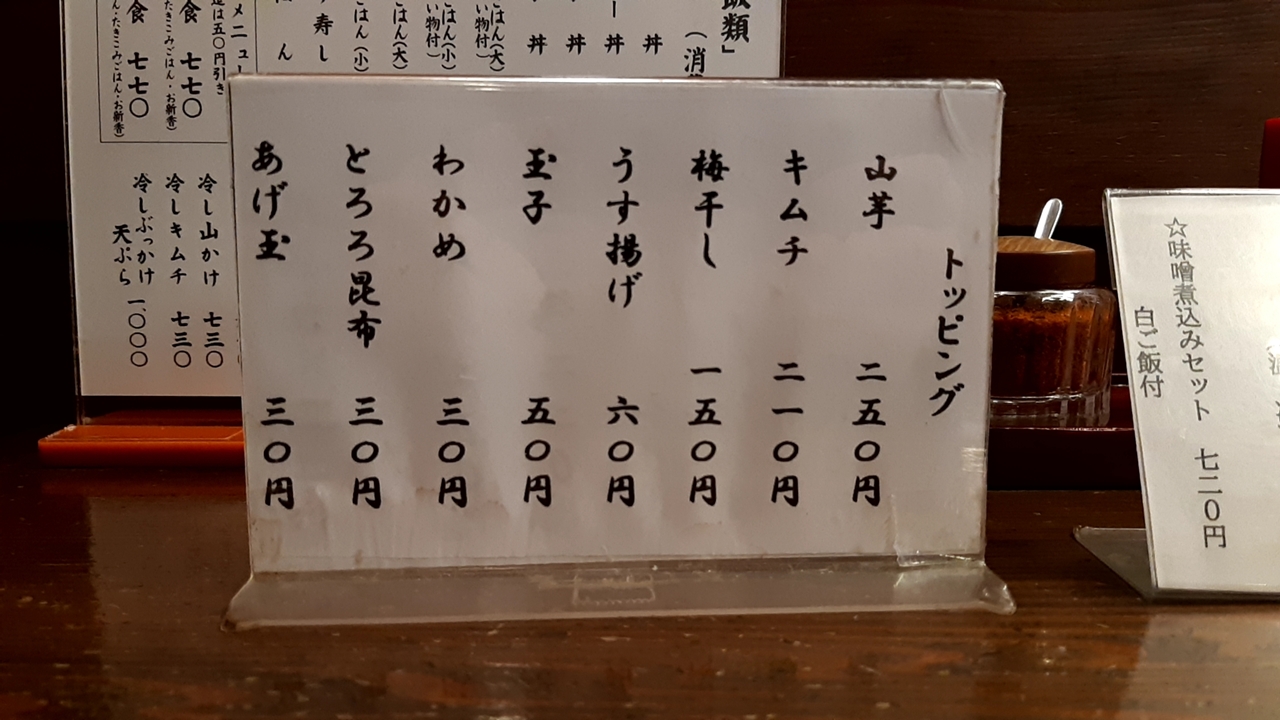 トッピング
山芋 二五〇円
キムチ 二一〇円
梅干し 一五〇円
うす揚げ 六〇円
玉子 五〇円
わかめ 三〇円
とろろ昆布 三〇円
あげ玉 三〇円
☆味噌煮込みセット 七二〇円
白ご飯付
飯類」
丼
丼
丼
丼
ごはん(大)
ごはん(小)
寿し
ん
メニュー
は五〇円引き
食 七七〇
たきこみごはん・お新香)
食 七七〇
ん・たきこみごはん・お新香)
冷し山かけ 七三〇
冷しキムチ 七三〇
冷しぶっかけ
天ぷら 一、〇〇〇